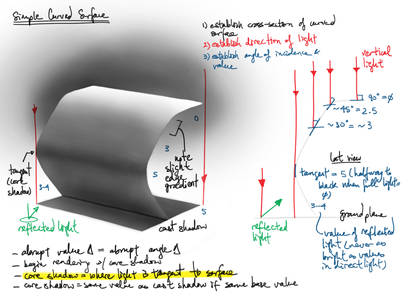 Simple Curved Surface
1) establish cross-section of curved
surface
2) establish direction of light
3) establish angle of incidence &
value
vertical
light
90° = ∅
~45° = 2.5
~30° = ~3
0
3
5
note
slight
edge
gradient
tangent
(core
shadow)
3-4
5
reflected light
cast shadow
reflected
light
last view
tangent = 5 (halfway to
black when full light =
∅)
3-4
ground plane
value of reflected
light (never as
bright as values
in direct light)
- abrupt value Δ = abrupt angle Δ
- begin rendering w/ core shadow
- core shadow = where light is tangent to surface
- core shadow = same value as cast shadow if same base value